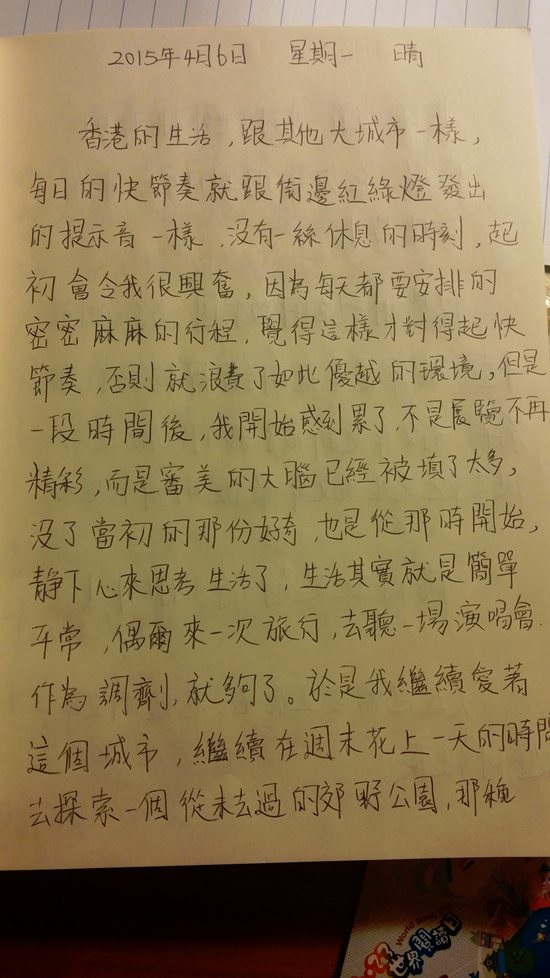 2015年4月6日 星期一 晴
香港的生活，跟其他大城市一樣，
每日的快節奏就跟街邊紅綠燈發出
的提示音一樣，沒有一絲休息的時刻，起
初會令我很興奮，因為每天都要安排的
密密麻麻的行程，覺得這樣才對得起快
節奏，否則就浪費了如此優越的環境。但是
一段時間後，我開始感到累了，不是展覽不再
精彩，而是審美的大腦已經被填了太多，
沒了當初的那份好奇，也是從那時開始，
靜下心來思考生活了，生活其實就是簡單
平常，偶爾來一次旅行，去聽一場演唱會.
作為調劑，就夠了。於是我繼續愛著
這個城市，繼續在週末花上一天的時間
去探索一個從未去過的郊野公園，那種
World
4.23
世界閱讀日